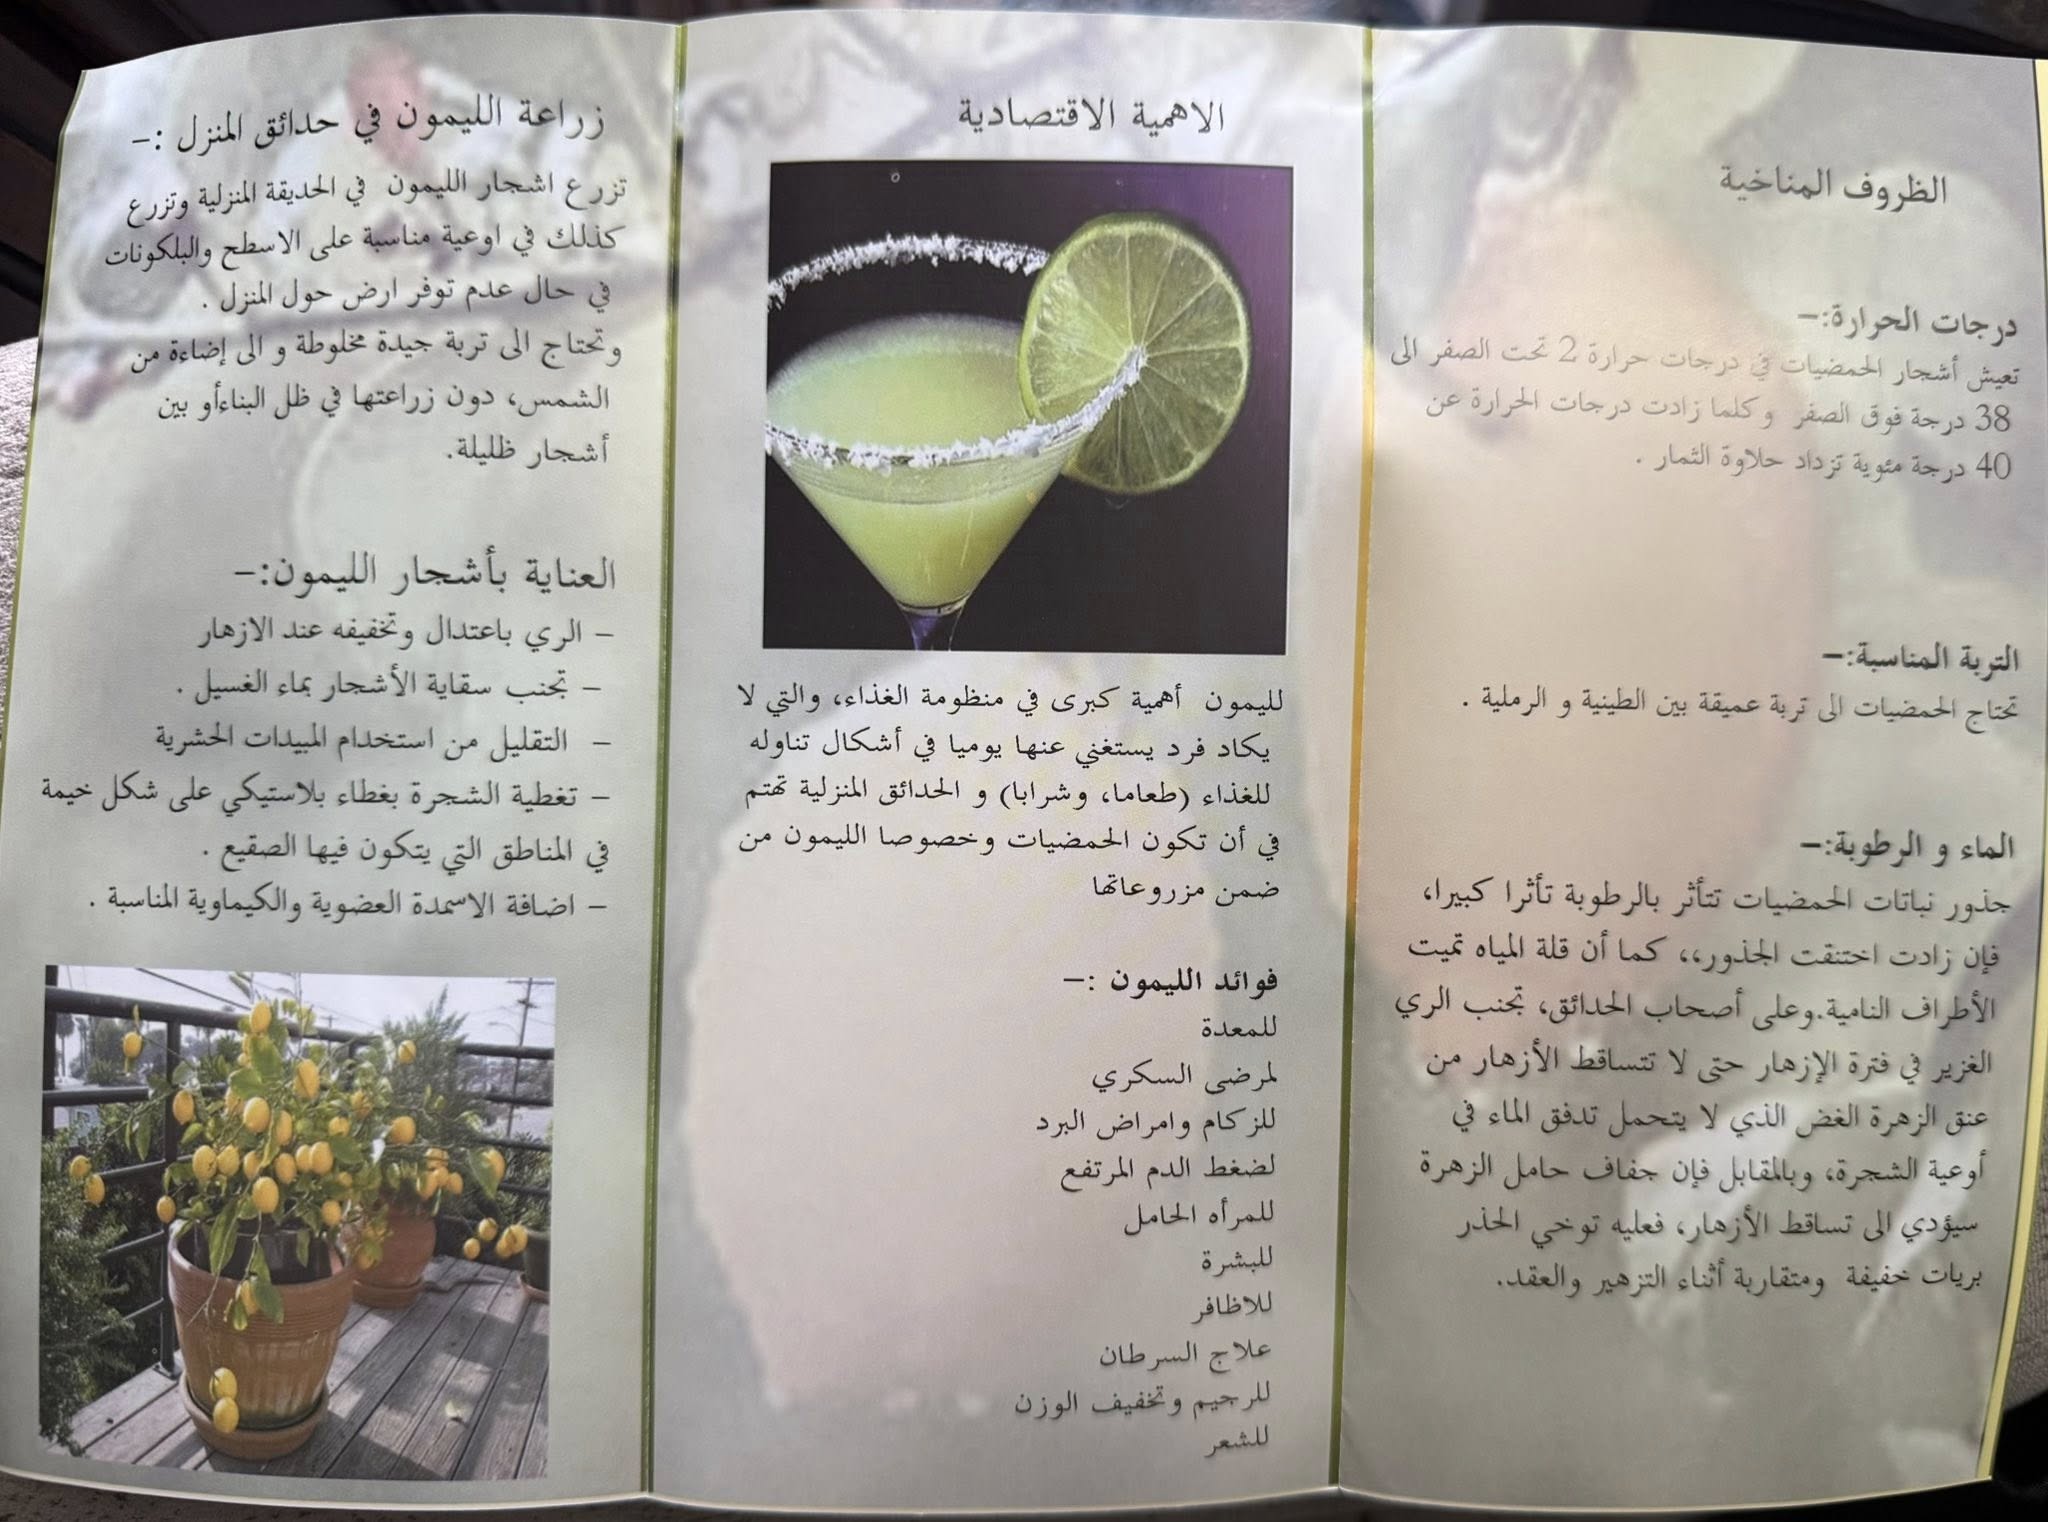 الظروف المناخية
درجات الحرارة:-
تعيش أشجار الحمضيات في درجات حرارة 2 تحت الصفر الى
38 درجة فوق الصفر وكلما زادت درجات الحرارة عن
40 درجة مئوية تزداد حلاوة الثمار .
التربة المناسبة:-
تحتاج الحمضيات الى تربة عميقة بين الطينية و الرملية .
الماء و الرطوبة:-
جذور نباتات الحمضيات تتأثر بالرطوبة تأثرا كبيرا،
فإن زادت اختنقت الجذور،، كما أن قلة المياه تميت
الأطراف النامية.وعلى أصحاب الحدائق، تجنب الري
الغزير في فترة الإزهار حتى لا تتساقط الأزهار من
عنق الزهرة الغض الذي لا يتحمل تدفق الماء في
أوعية الشجرة، وبالمقابل فإن جفاف حامل الزهرة
سيؤدي الى تساقط الأزهار، فعليه توخي الحذر
بريات خفيفة ومتقاربة أثناء التزهير والعقد.
الاهمية الاقتصادية
لليمون أهمية كبرى في منظومة الغذاء، والتي لا
يكاد فرد يستغني عنها يوميا في أشكال تناوله
للغذاء (طعاما، وشرابا) و الحدائق المنزلية تهتم
في أن تكون الحمضيات وخصوصا الليمون من
ضمن مزروعاتها
فوائد الليمون :-
للمعدة
لمرضى السكري
للزكام وامراض البرد
لضغط الدم المرتفع
للمرأه الحامل
للبشرة
للاظافر
علاج السرطان
للرجيم وتخفيف الوزن
للشعر
زراعة الليمون في حدائق المنزل :-
تزرع اشجار الليمون في الحديقة المنزلية وتزرع
كذلك في اوعية مناسبة على الاسطح والبلكونات
في حال عدم توفر ارض حول المنزل .
وتحتاج الى تربة جيدة مخلوطة و الى إضاءة من
الشمس، دون زراعتها في ظل البناءأو بين
أشجار ظليلة.
العناية بأشجار الليمون:-
- الري باعتدال وتخفيفه عند الازهار
- تجنب سقاية الأشجار بماء الغسيل .
- التقليل من استخدام المبيدات الحشرية
- تغطية الشجرة بغطاء بلاستيكي على شكل خيمة
في المناطق التي يتكون فيها الصقيع .
- اضافة الاسمدة العضوية والكيماوية المناسبة .